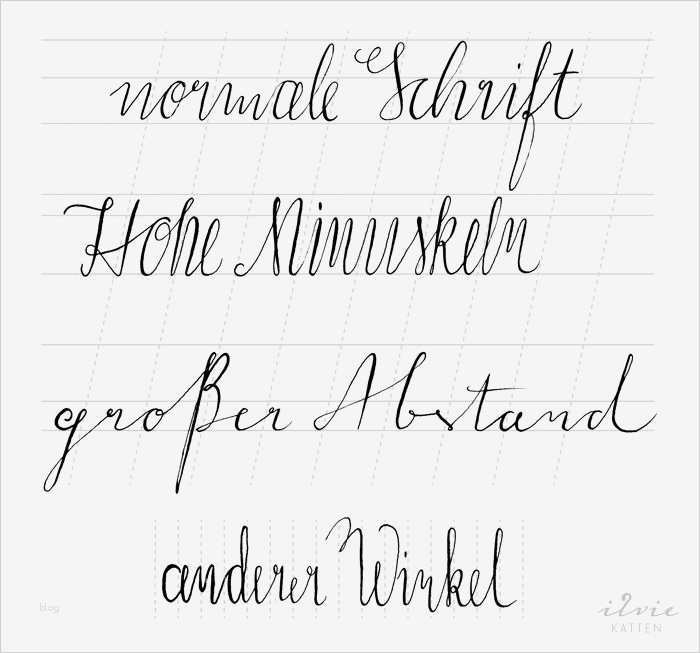 normale Schrift
Hohe Minuskeln
großer Abstand
anderer Winkel
blog
ilvie
KATTEN